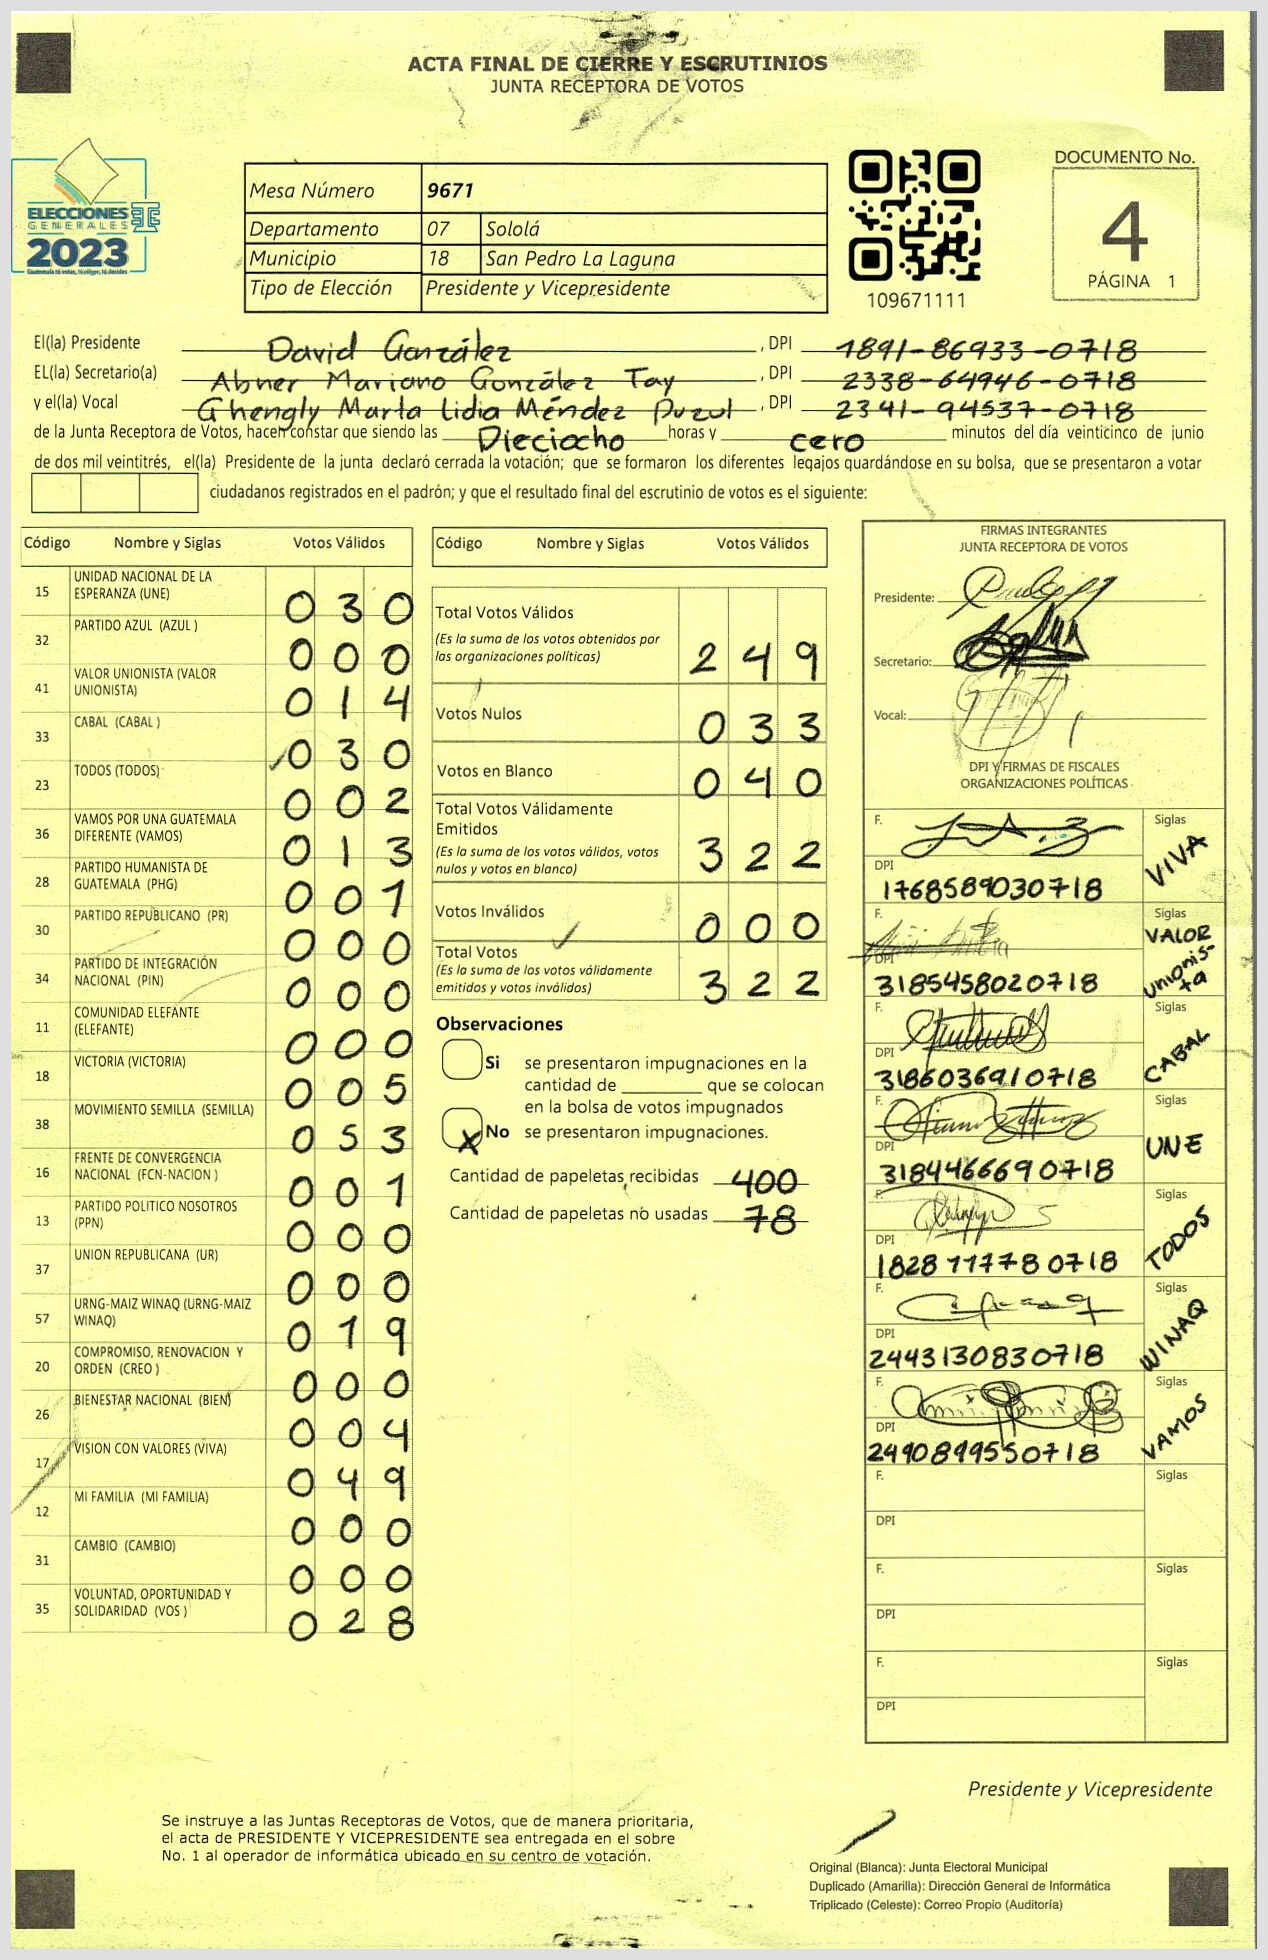 ACTA FINAL DE CIERRE Y ESCRUTINIOS
JUNTA RECEPTORA DE VOTOS
ELECCIONES
GENERALES
2023
Guatemala tú votas, tú eliges, tú decides
Mesa Número 9671
Departamento 07 Sololá
Municipio 18 San Pedro La Laguna
Tipo de Elección Presidente y Vicepresidente
109671111
DOCUMENTO No.
4
PÁGINA 1
El(la) Presidente David González , DPI 1891-86933-0718
EL(la) Secretario(a) Abner Mariano González Tay , DPI 2338-64946-0718
y el(la) Vocal Ghengly Marta Lidia Méndez Puzul , DPI 2341-94537-0718
de la Junta Receptora de Votos, hacen constar que siendo las Dieciocho horas y cero minutos del día veinticinco de junio
de dos mil veintitrés, el(la) Presidente de la junta declaró cerrada la votación; que se formaron los diferentes legajos guardándose en su bolsa, que se presentaron a votar
ciudadanos registrados en el padrón; y que el resultado final del escrutinio de votos es el siguiente:
Código Nombre y Siglas Votos Válidos
15 UNIDAD NACIONAL DE LA
ESPERANZA (UNE) 030
32 PARTIDO AZUL (AZUL ) 000
41 VALOR UNIONISTA (VALOR
UNIONISTA) 014
33 CABAL (CABAL ) 030
23 TODOS (TODOS) 002
36 VAMOS POR UNA GUATEMALA
DIFERENTE (VAMOS) 013
28 PARTIDO HUMANISTA DE
GUATEMALA (PHG) 001
30 PARTIDO REPUBLICANO (PR) 000
34 PARTIDO DE INTEGRACIÓN
NACIONAL (PIN) 000
11 COMUNIDAD ELEFANTE
(ELEFANTE) 000
18 VICTORIA (VICTORIA) 005
38 MOVIMIENTO SEMILLA (SEMILLA) 053
16 FRENTE DE CONVERGENCIA
NACIONAL (FCN-NACION ) 001
13 PARTIDO POLITICO NOSOTROS
(PPN) 000
37 UNION REPUBLICANA (UR) 000
57 URNG-MAIZ WINAQ (URNG-MAIZ
WINAQ) 019
20 COMPROMISO, RENOVACION Y
ORDEN (CREO ) 000
26 BIENESTAR NACIONAL (BIEN) 004
17 VISION CON VALORES (VIVA) 049
12 MI FAMILIA (MI FAMILIA) 000
31 CAMBIO (CAMBIO) 000
35 VOLUNTAD, OPORTUNIDAD Y
SOLIDARIDAD (VOS ) 028
Código Nombre y Siglas Votos Válidos
Total Votos Válidos
(Es la suma de los votos obtenidos por
las organizaciones políticas) 249
Votos Nulos 033
Votos en Blanco 040
Total Votos Válidamente
Emitidos
(Es la suma de los votos válidos, votos
nulos y votos en blanco) 322
Votos Inválidos 000
Total Votos
(Es la suma de los votos válidamente
emitidos y votos inválidos) 322
Observaciones
Si se presentaron impugnaciones en la
cantidad de ________ que se colocan
en la bolsa de votos impugnados
X No se presentaron impugnaciones.
Cantidad de papeletas recibidas 400
Cantidad de papeletas no usadas 78
FIRMAS INTEGRANTES
JUNTA RECEPTORA DE VOTOS
Presidente:
Secretario:
Vocal:
DPI Y FIRMAS DE FISCALES
ORGANIZACIONES POLÍTICAS
F. Siglas
VIVA
DPI
1768589030718
F. Siglas
VALOR
Unionis-
ta
DPI
3185458020718
Siglas
CABAL
DPI
3186036910718
F. Siglas
UNE
DPI
3184466690718
F. Siglas
TODOS
DPI
1828117780718
F. Siglas
WINAQ
DPI
2443130830718
F. Siglas
VAMOS
DPI
2490899550718
F. Siglas
DPI
F. Siglas
DPI
F. Siglas
DPI
Presidente y Vicepresidente
Se instruye a las Juntas Receptoras de Votos, que de manera prioritaria,
el acta de PRESIDENTE Y VICEPRESIDENTE sea entregada en el sobre
No. 1 al operador de informática ubicado en su centro de votación.
Original (Blanca): Junta Electoral Municipal
Duplicado (Amarilla): Dirección General de Informática
Triplicado (Celeste): Correo Propio (Auditoría)